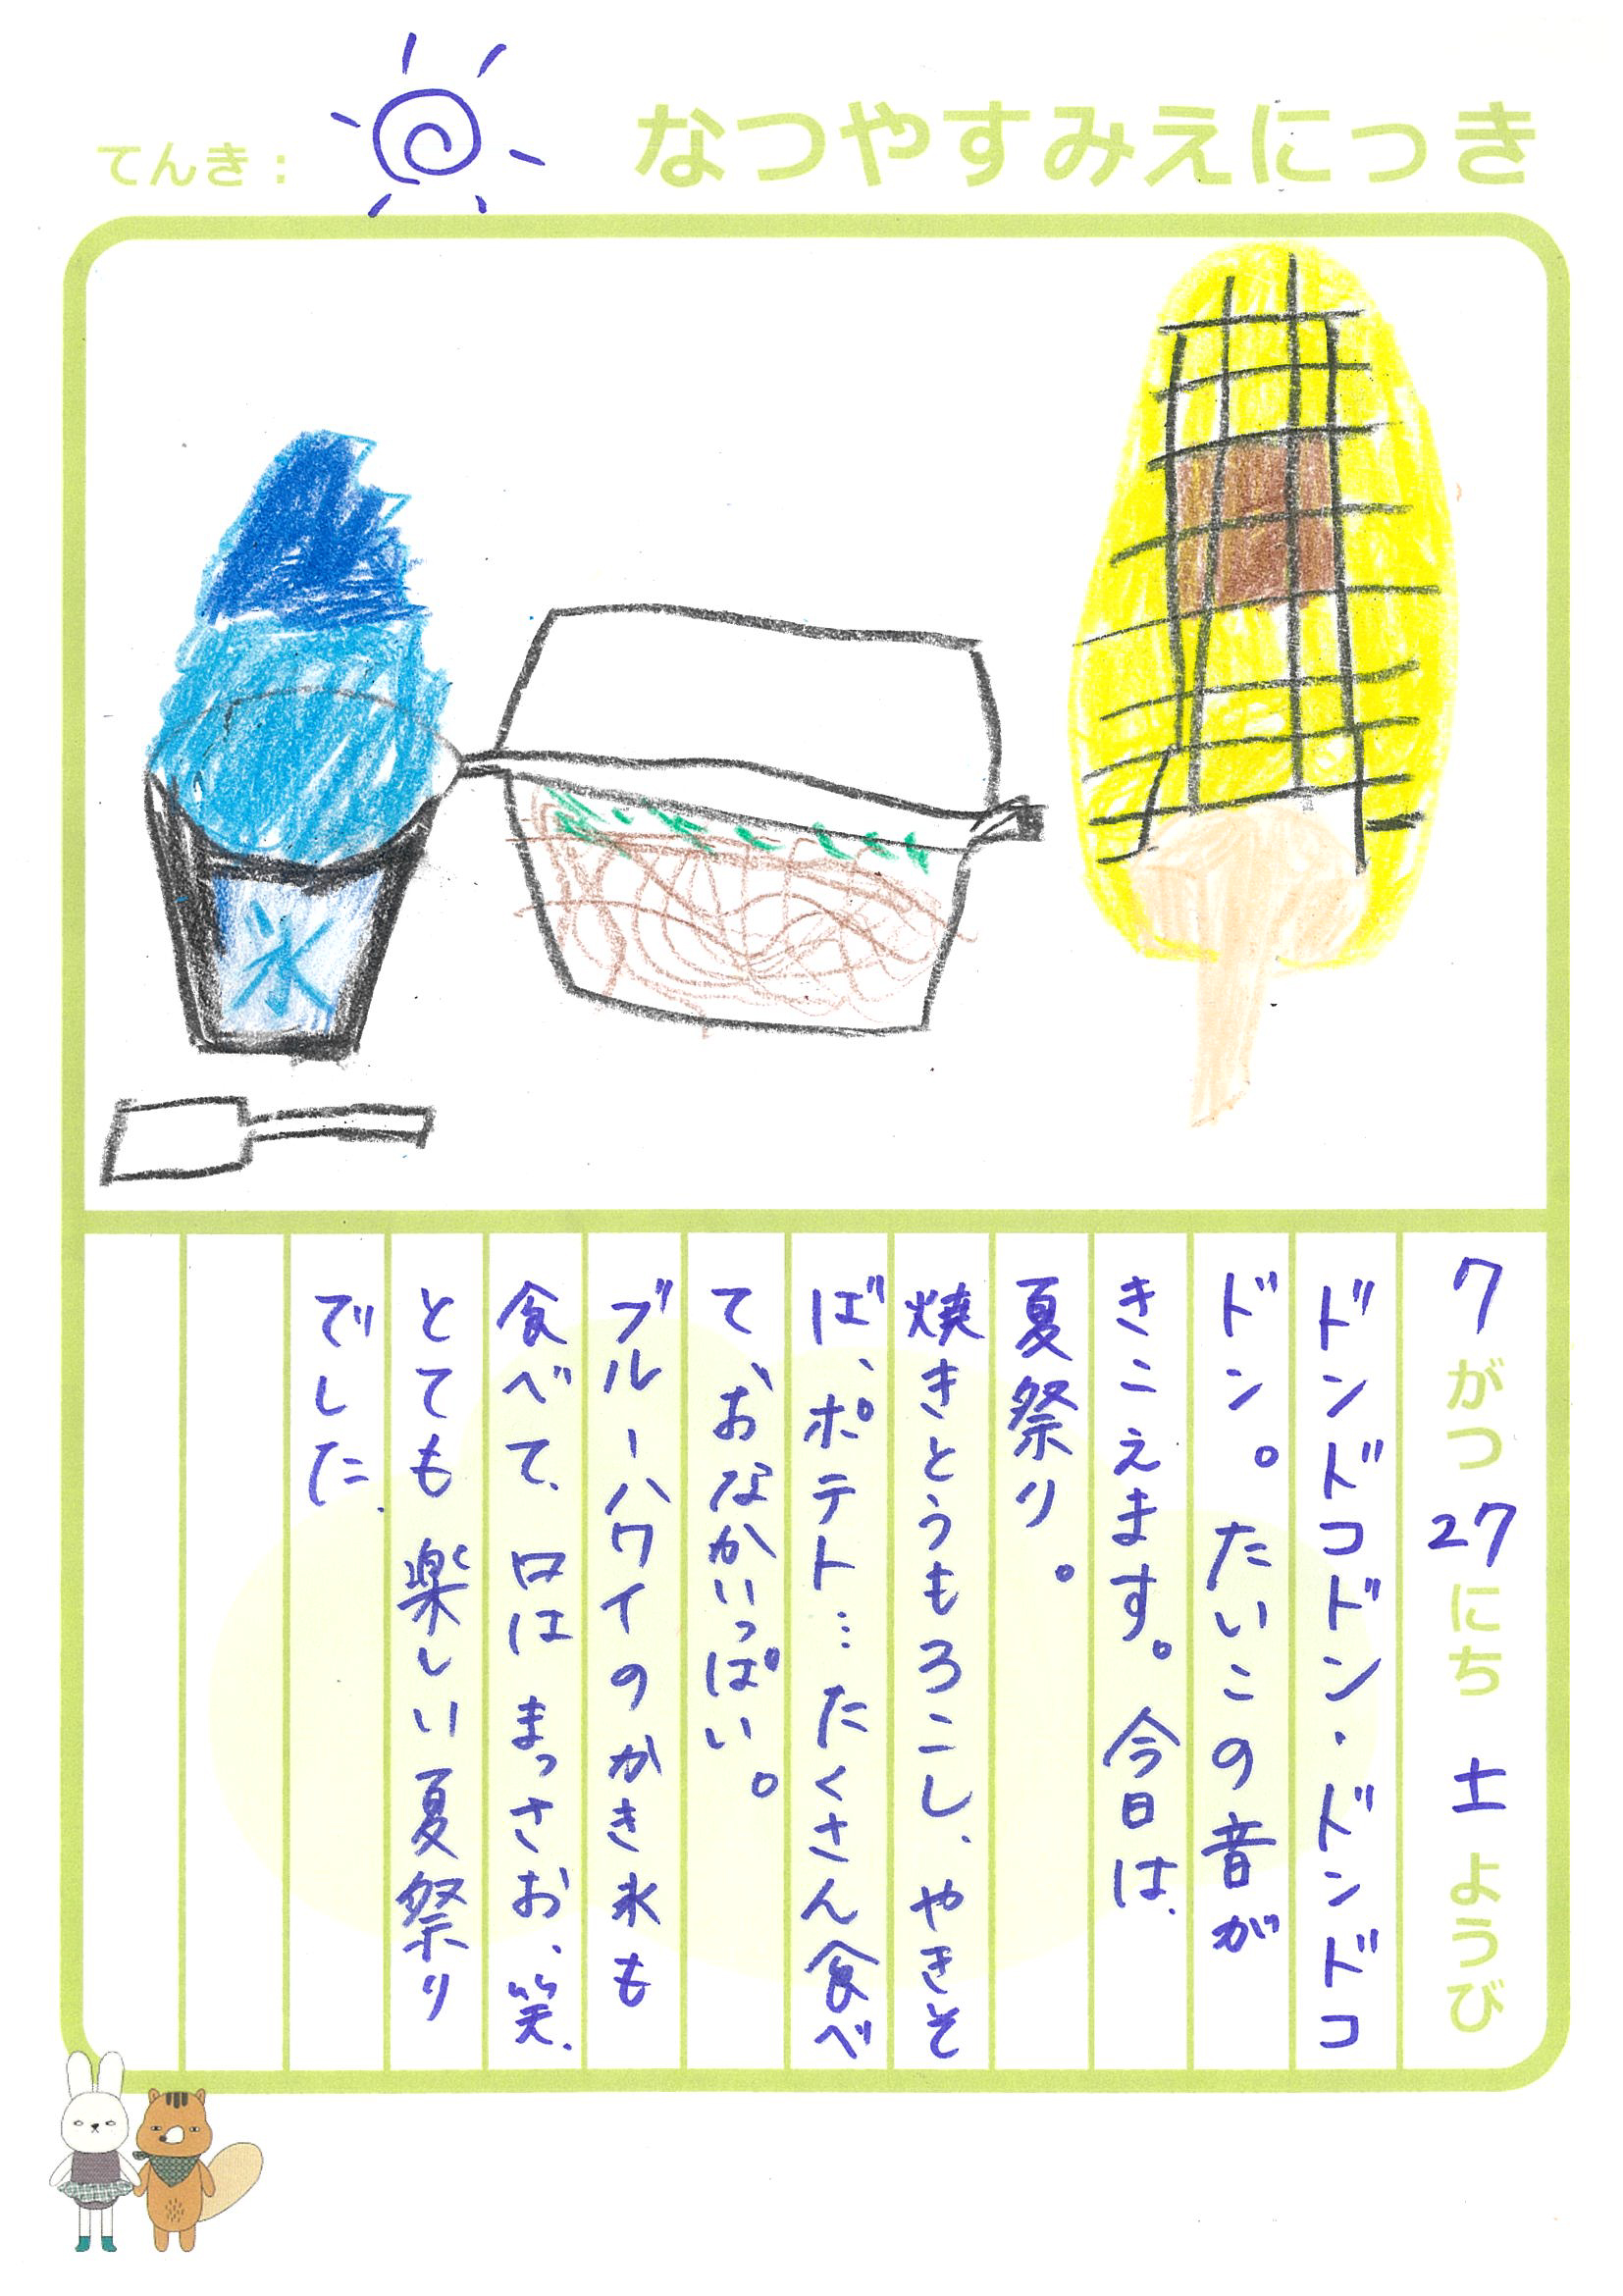 なつやすみえにっき
てんき：
氷
7がつ27にち 土ようび
ドンドコドン・ドンドコ
ドン。たいこの音が
きこえます。今日は、
夏祭り。
焼きとうもろこし、やきそ
ば、ポテト…たくさん食べ
て、おなかいっぱい。
ブルーハワイのかき氷も
食べて、口はまっさお、笑、
とても楽しい夏祭り
でした、